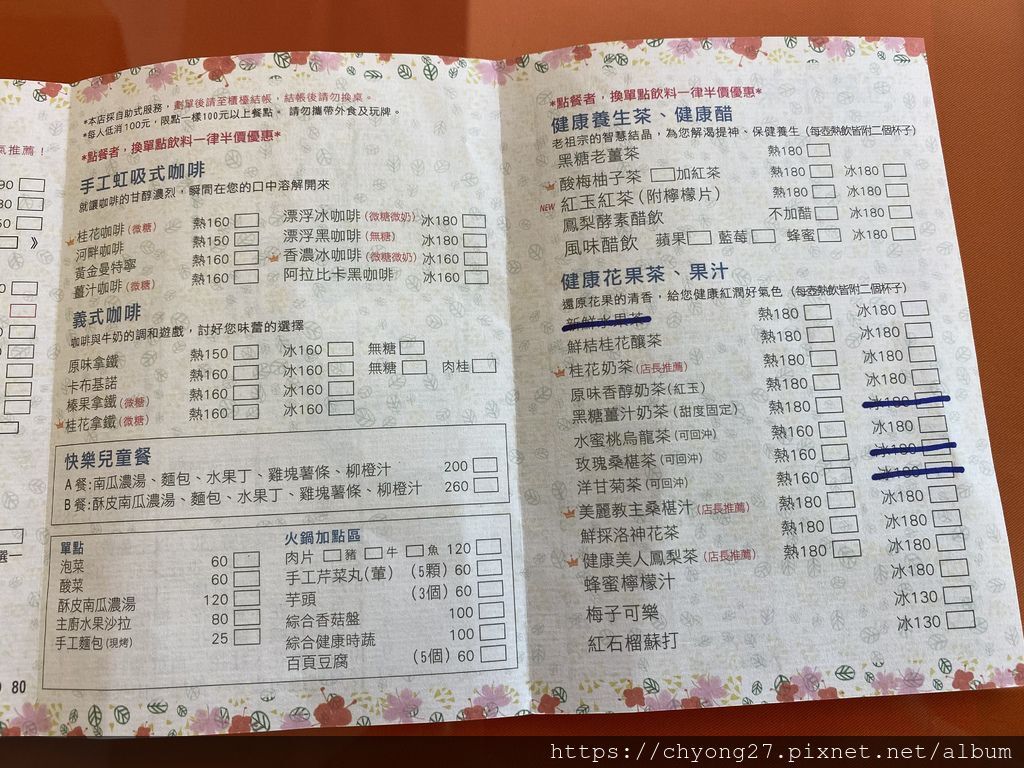 *本店採自助式服務，劃單後請至櫃檯結帳，結帳後請勿換桌。
*每人低消100元，限點一樣100元以上餐點。 請勿攜帶外食及玩牌。
*點餐者，換單點飲料一律半價優惠*
手工虹吸式咖啡
就讓咖啡的甘醇濃烈，瞬間在您的口中溶解開來
桂花咖啡(微糖) 熱160 漂浮冰咖啡(微糖微奶) 冰180
河畔咖啡 熱150 漂浮黑咖啡(無糖) 冰180
黃金曼特寧 熱160 香濃冰咖啡(微糖微奶) 冰160
薑汁咖啡(微糖) 熱160 阿拉比卡黑咖啡 冰160
義式咖啡
咖啡與牛奶的調和遊戲，討好您味蕾的選擇
原味拿鐵 熱150 冰160 無糖
卡布基諾 熱160 冰160 無糖 肉桂
榛果拿鐵(微糖) 熱160 冰160
桂花拿鐵(微糖) 熱160 冰160
快樂兒童餐
A餐:南瓜濃湯、麵包、水果丁、雞塊薯條、柳橙汁 200
B餐:酥皮南瓜濃湯、麵包、水果丁、雞塊薯條、柳橙汁 260
單點
泡菜 60
酸菜 60
酥皮南瓜濃湯 120
主廚水果沙拉 80
手工麵包(現烤) 25
火鍋加點區
肉片 豬 牛 魚 120
手工芹菜丸(葷) (5顆) 60
芋頭 (3個) 60
綜合香菇盤 100
綜合健康時蔬 100
百頁豆腐 (5個) 60
*點餐者，換單點飲料一律半價優惠*
健康養生茶、健康醋
老祖宗的智慧結晶，為您解渴提神、保健養生(每壺熱飲皆附二個杯子)
黑糖老薑茶 熱180
酸梅柚子茶 加紅茶 熱180 冰180
NEW 紅玉紅茶(附檸檬片) 熱180 冰180
鳳梨酵素醋飲 不加醋 冰180
風味醋飲 蘋果 藍莓 蜂蜜 冰180
健康花果茶、果汁
還原花果的清香，給您健康紅潤好氣色 (每壺熱飲皆附二個杯子)
新鮮水果茶 熱180 冰180
鮮桔桂花釀茶 熱180 冰180
桂花奶茶(店長推薦) 熱180 冰180
原味香醇奶茶(紅玉) 熱180 冰180
黑糖薑汁奶茶(甜度固定) 熱180 冰180
水蜜桃烏龍茶(可回沖) 熱160 冰180
玫瑰桑椹茶(可回沖) 熱160 冰180
洋甘菊茶(可回沖) 熱160 冰180
美麗教主桑椹汁(店長推薦) 熱180 冰180
鮮採洛神花茶 熱180 冰180
健康美人鳳梨茶(店長推薦) 熱180 冰180
蜂蜜檸檬汁 冰180
梅子可樂 冰130
紅石榴蘇打 冰130
80
https://chyong27.pixnet.net/album